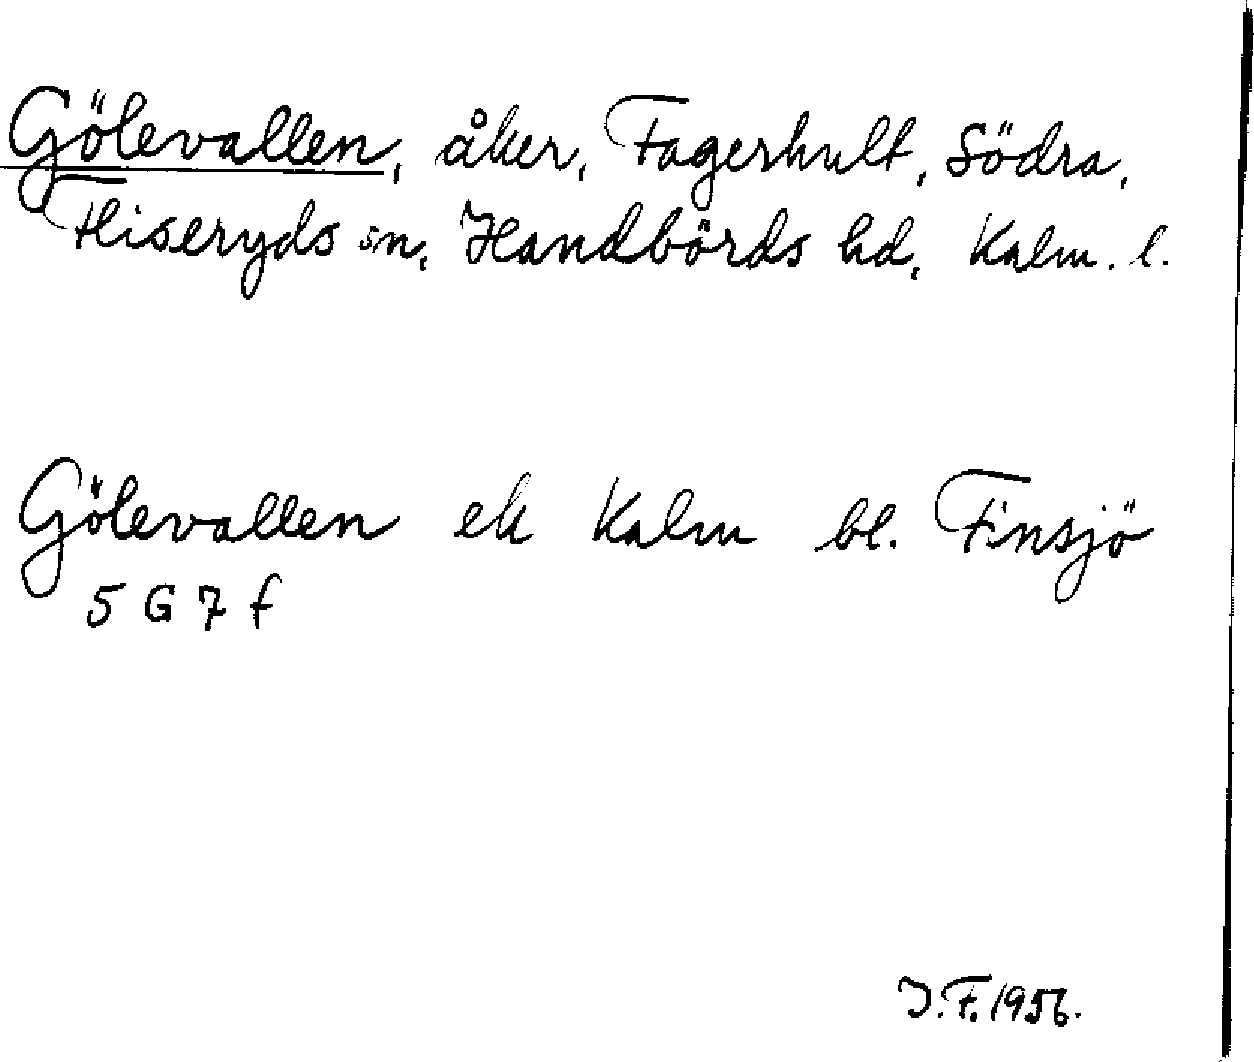 Gölevallen, åker, Fagerhult, Södra,
Fliseryds sn, Handbörds hd, Kalm. l.
Gölevallen ek Kalm bl. Finsjö
5 G 7 f
J.F. 1956.